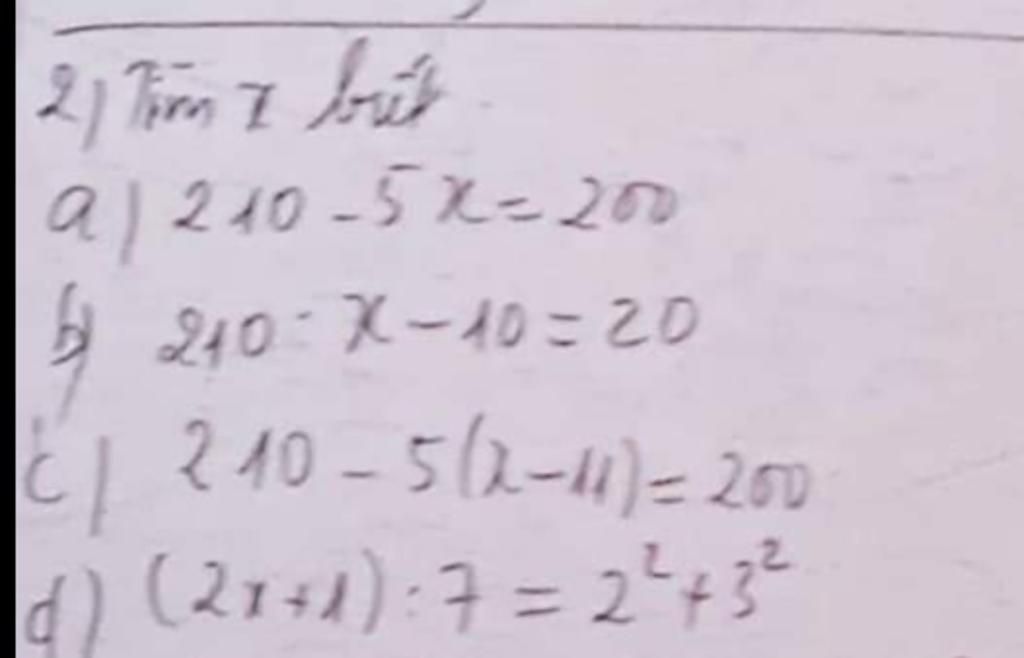 2) Tìm x biết
a) 210 - 5x = 200
b) 210 : x - 10 = 20
c) 210 - 5(x - 11) = 200
d) (2x + 1) : 7 = 2² + 3²